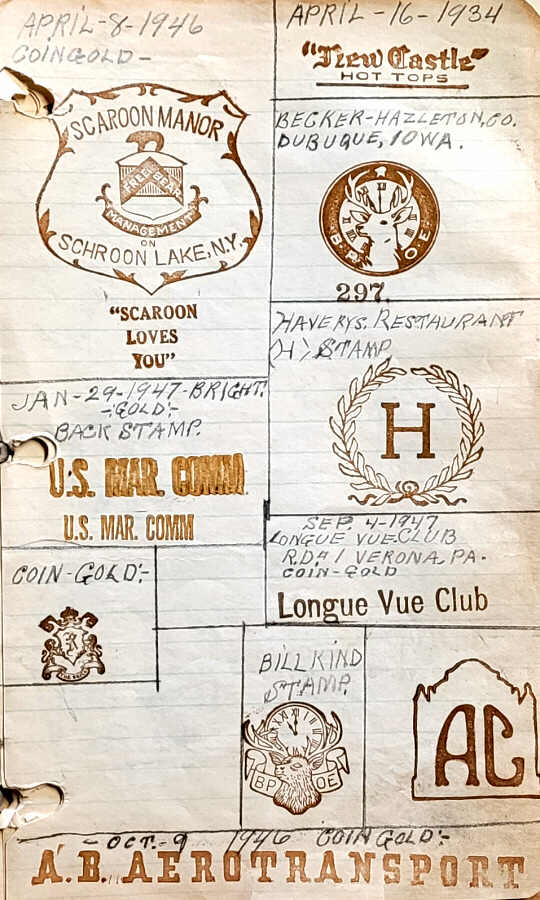 APRIL-8-1946
COINGOLD-
SCAROON MANOR
FREE BEAR
MANAGEMENT
ON
SCHROON LAKE, N.Y.
"SCAROON
LOVES
YOU"
JAN-29-1947-BRIGHT.
-GOLD-
BACK STAMP.
U.S. MAR. COMM
U.S. MAR. COMM
COIN-GOLD-
APRIL-16-1934
"New Castle"
HOT TOPS
BECKER-HAZLETON, CO.
DUBUQUE, IOWA.
B P O E
297.
HAVERYS. RESTAURANT
(H) STAMP
H
SEP. 4-1947
LONGUE VUE. CLUB
R.D#1 VERONA, PA.
COIN-GOLD
Longue Vue Club
BILL KIND
STAMP.
BP OE
AC
-OCT.-9 1946 COINGOLD-
A.B. AEROTRANSPORT